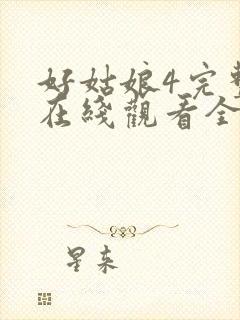 好姑娘4完整
在线觀看全
星辰